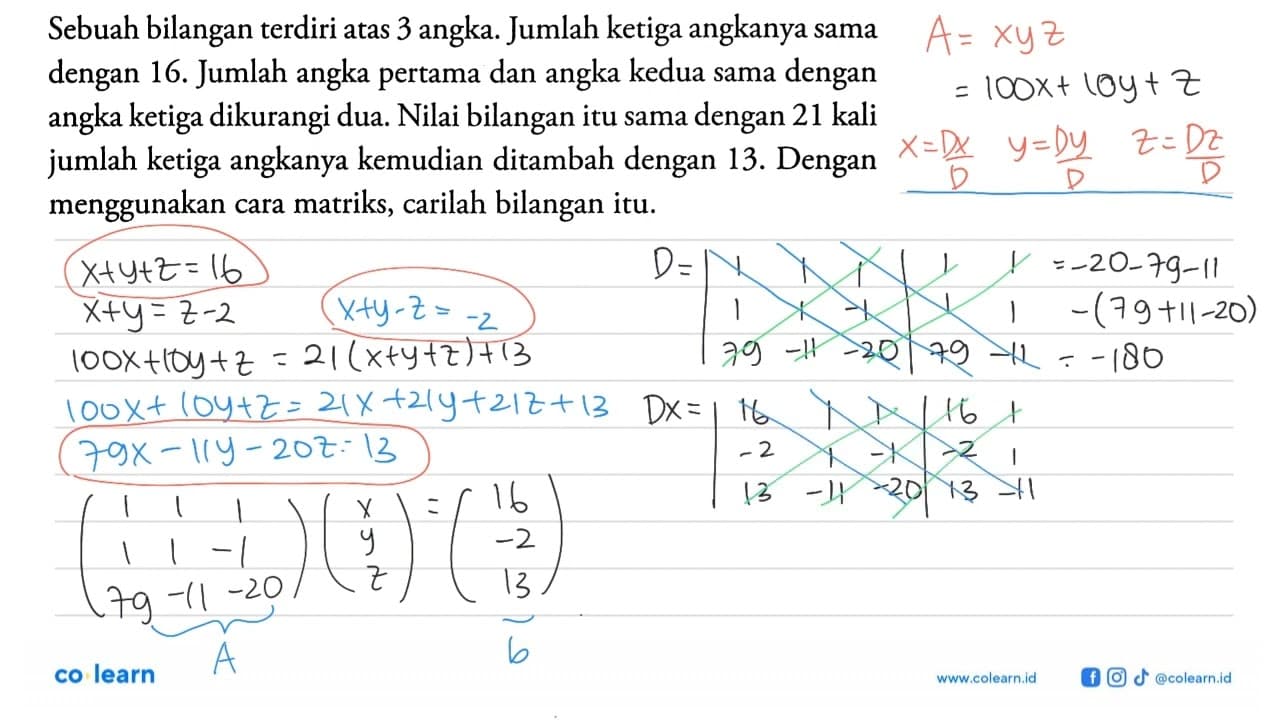 Sebuah bilangan terdiri atas 3 angka. Jumlah ketiga angkanya sama
dengan 16. Jumlah angka pertama dan angka kedua sama dengan
angka ketiga dikurangi dua. Nilai bilangan itu sama dengan 21 kali
jumlah ketiga angkanya kemudian ditambah dengan 13. Dengan
menggunakan cara matriks, carilah bilangan itu.
A = xyz
= 100x + 10y + z
x = Dx/D y = Dy/D z = Dz/D
x+y+z = 16
x+y = z-2
x+y-z = -2
100x+10y+z = 21(x+y+z)+13
100x+10y+z = 21x+21y+21z+13
79x-11y-20z = 13
1 1 1 x = 16
1 1 -1 y -2
79 -11 -20 z 13
A b
D = 1 1 1 | 1 1 = -20-79-11
1 1 -1 | 1 1 -(79+11-20)
79 -11 -20 | 79 -11 = -180
Dx = 16 1 1 | 16 1
-2 1 -1 | -2 1
13 -11 -20 | 13 -11
co learn
www.colearn.id
@colearn.id